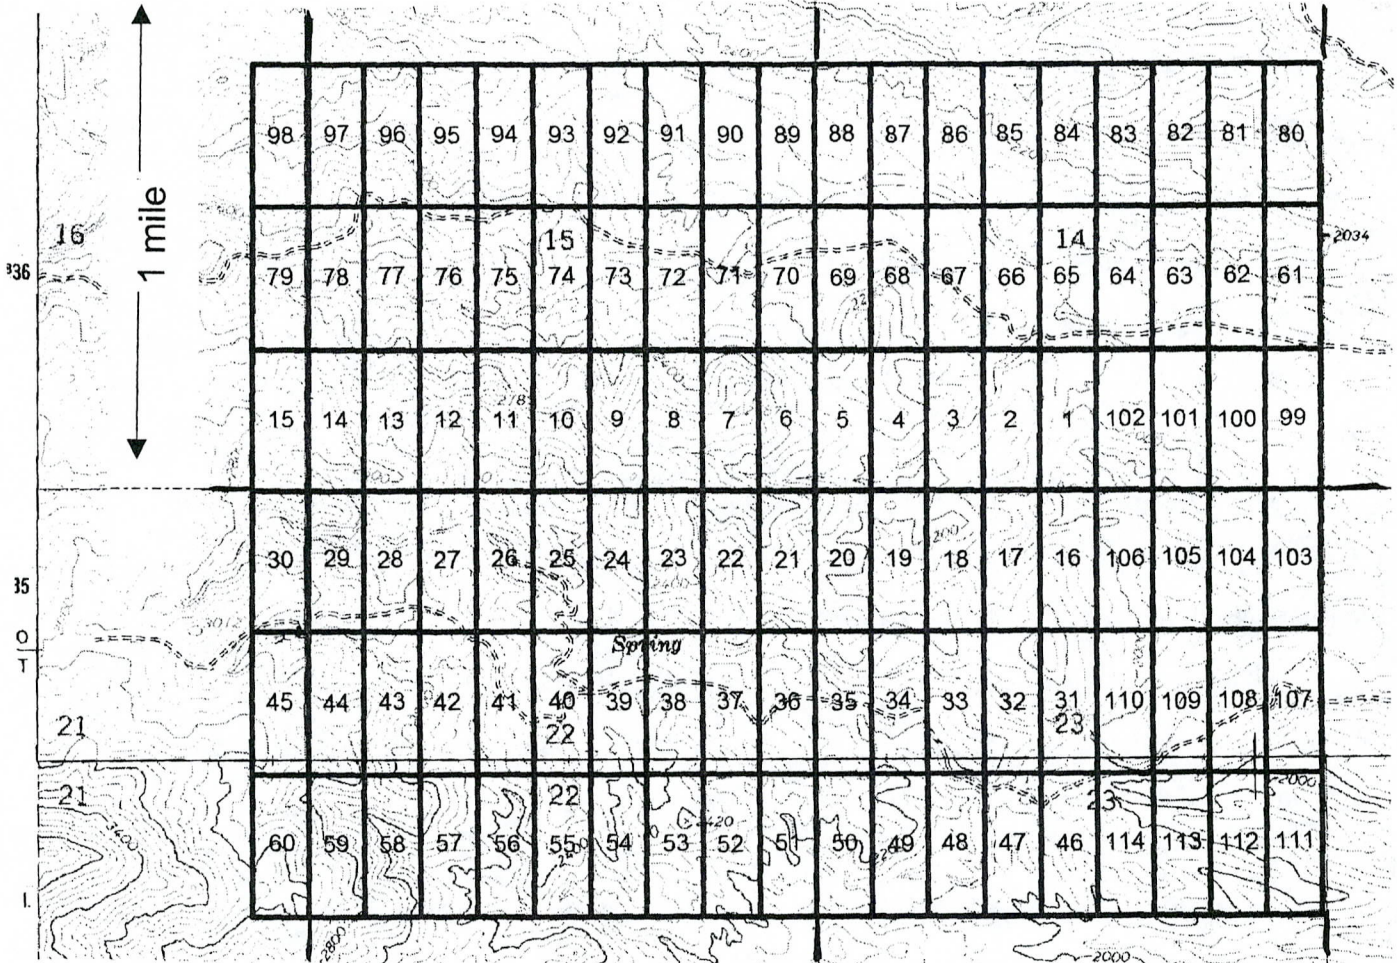 98 97 96 95 94 93 92 91 90 89 88 87 86 85 84 83 82 81 80
1 mile
16
15
14
2034
336
79 78 77 76 75 74 73 72 71 70 69 68 67 66 65 64 63 62 61
15 14 13 12 11 10 9 8 7 6 5 4 3 2 1 102 101 100 99
30 29 28 27 26 25 24 23 22 21 20 19 18 17 16 106 105 104 103
35
3012
O
T
Spring
45 44 43 42 41 40 39 38 37 36 35 34 33 32 31 110 109 108 107
21
22
23
21
22
23
2000
3400
2420
60 59 58 57 56 55 54 53 52 51 50 49 48 47 46 114 113 112 111
2800
2000